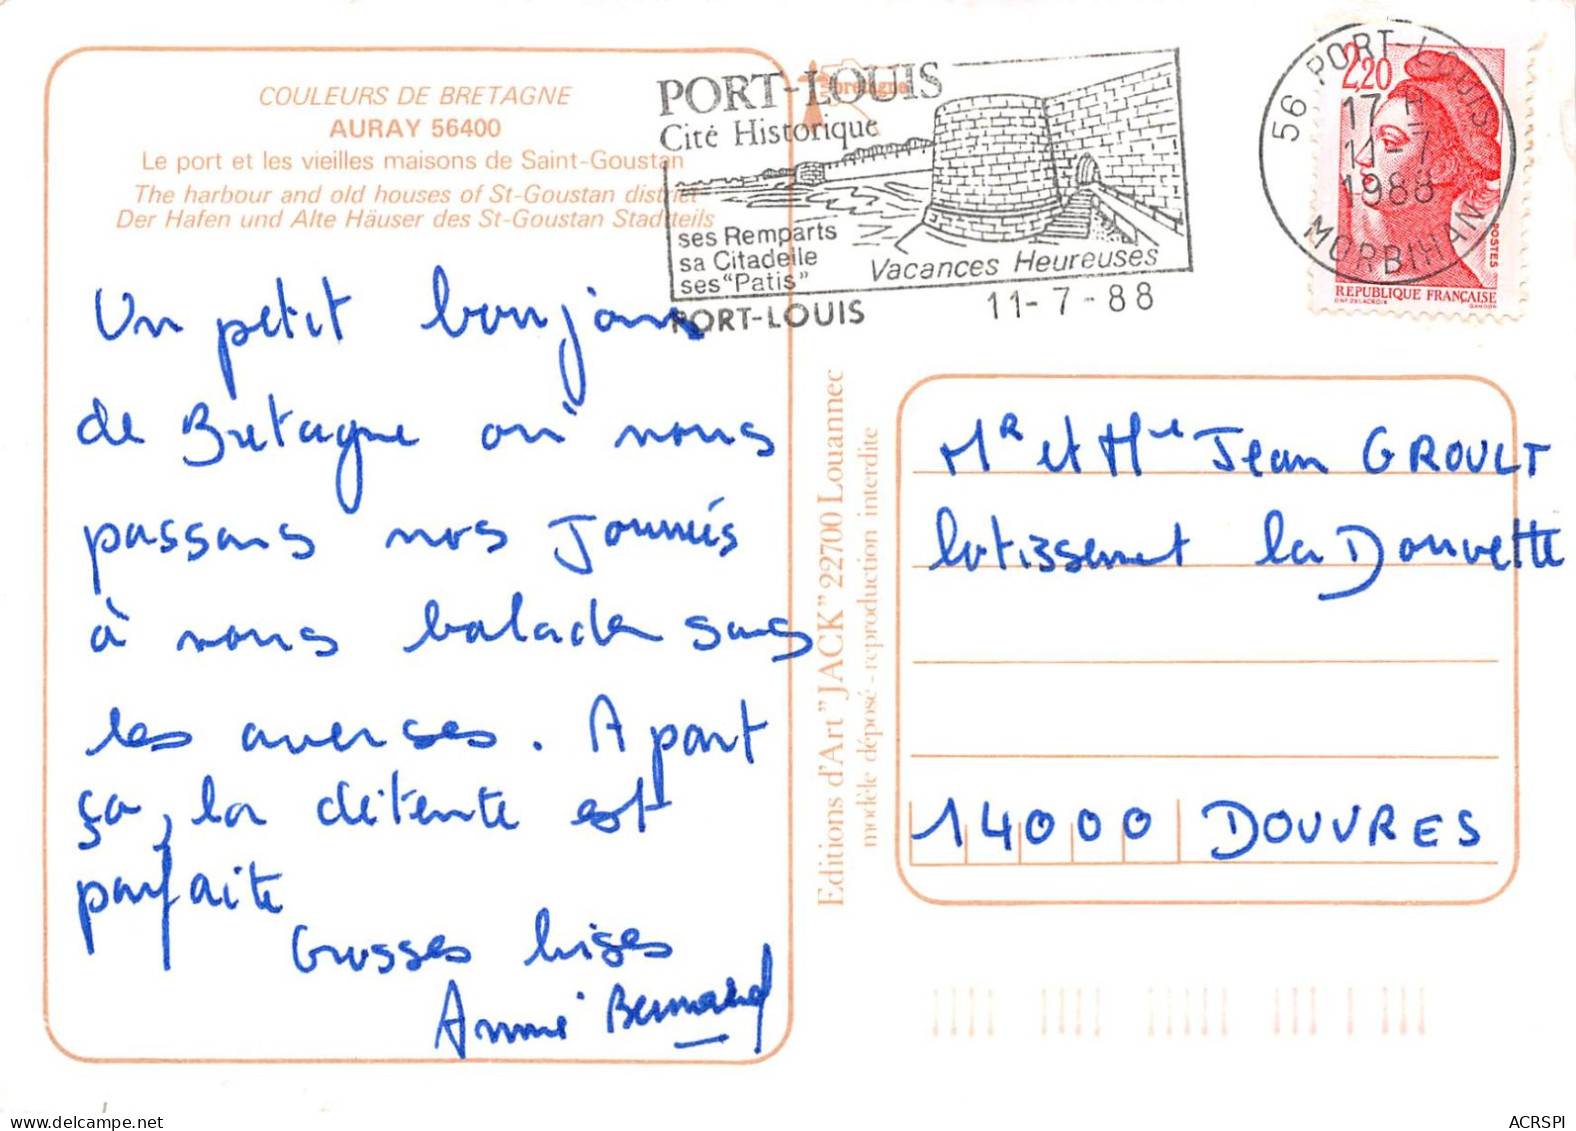 COULEURS DE BRETAGNE
AURAY 56400
Le port et les vieilles maisons de Saint-Goustan
The harbour and old houses of St-Goustan district
Der Hafen und Alte Häuser des St-Goustan Stadtteils
Un petit bonjour
de Bretagne où nous
passons nos journées
à nous balader sous
les averses. A part
ça, la détente est
parfaite
Grosses bises
Annie Bernard
PORT-LOUIS
Cité Historique
ses Remparts
sa Citadelle
ses "Patis"
Vacances Heureuses
PORT-LOUIS
11-7-88
bretagne
56 PORT-LOUIS
17 H
11-7
1988
MORBIHAN
2,20
POSTES
REPUBLIQUE FRANÇAISE
D'AP. DELACROIX
GANDON
Editions d'Art "JACK" 22700 Louannec
modèle déposé - reproduction interdite
Mr et Mme Jean GROULT
lotissement la Douvette
14000 DOUVRES
ACRSPI